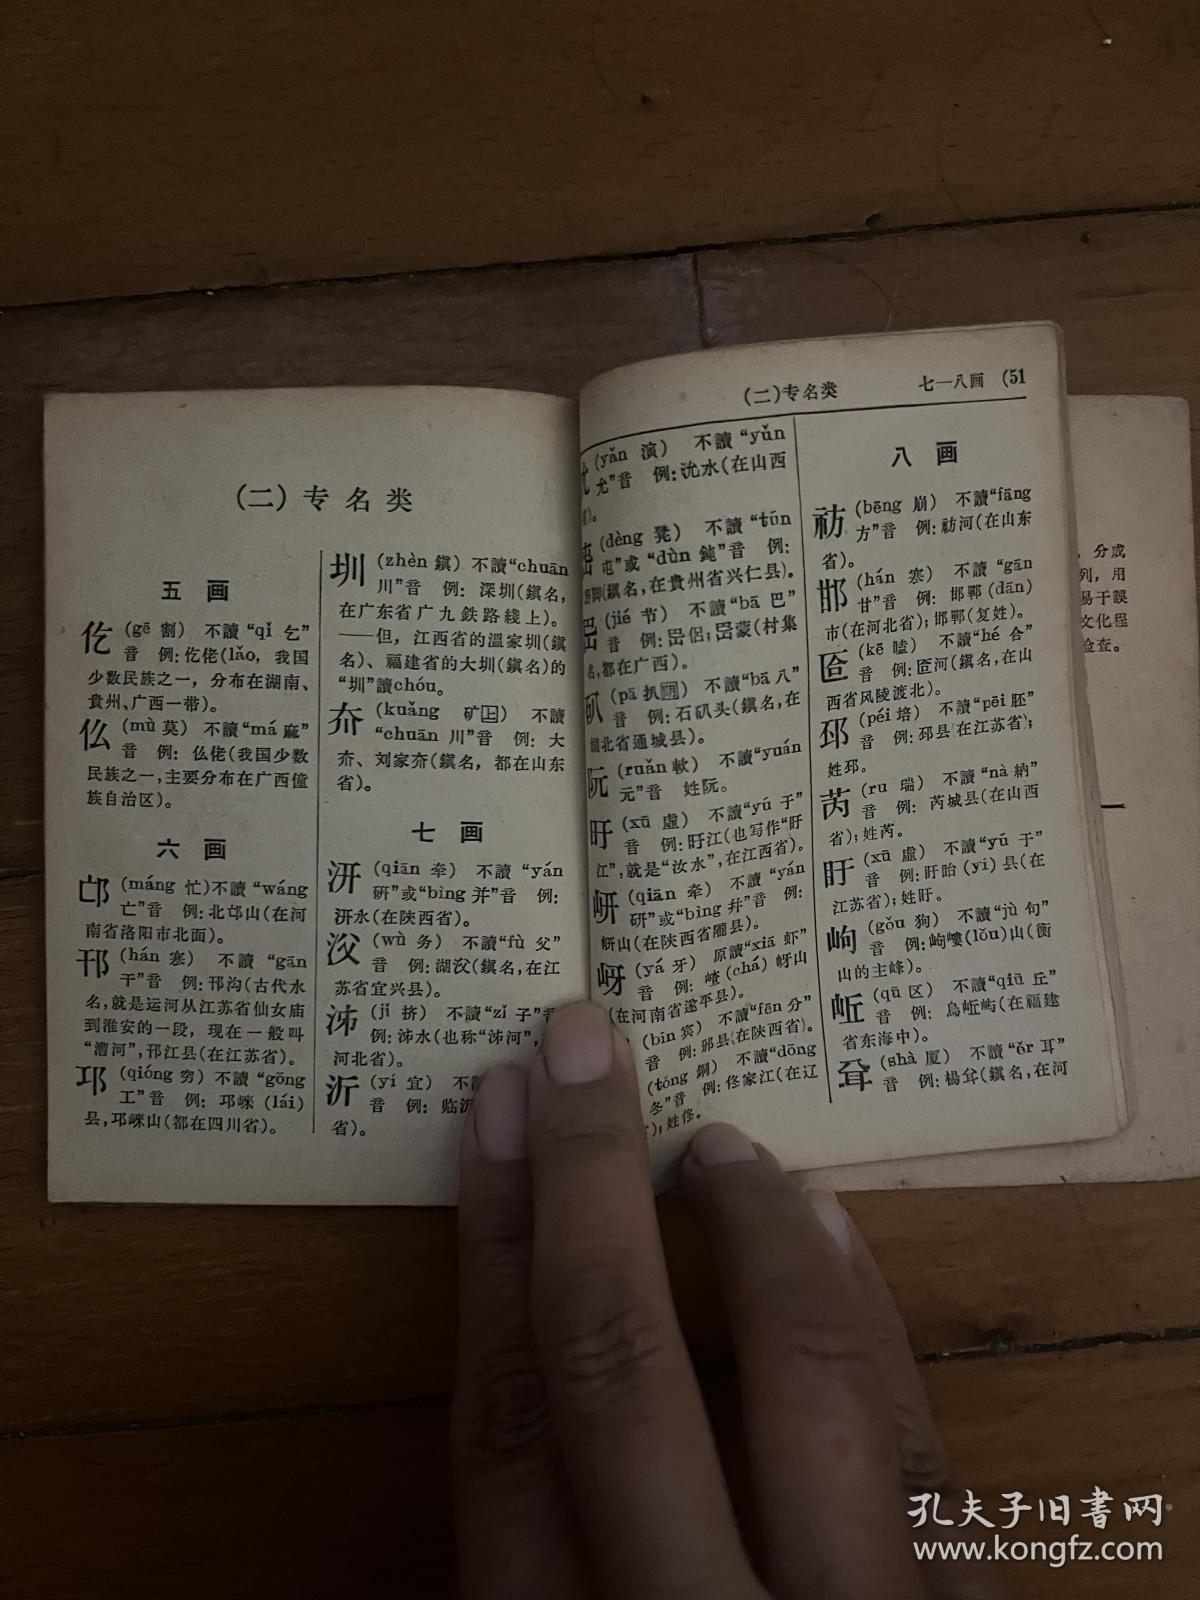 （二）专名类
五画
仡 (gē 割) 不讀“qǐ 乞”
音 例：仡佬(lǎo，我国
少数民族之一，分布在湖南、
貴州、广西一带)。
仫 (mù 莫) 不讀“má 麻”
音 例：仫佬(我国少数
民族之一，主要分布在广西僮
族自治区)。
六画
邙 (máng 忙)不讀“wáng
亡”音 例：北邙山(在河
南省洛阳市北面)。
邗 (hán 寒) 不讀“gān
干”音 例：邗沟(古代水
名，就是运河从江苏省仙女庙
到淮安的一段，现在一般叫
“漕河”，邗江县(在江苏省)。
邛 (qióng 穷) 不讀“gōng
工”音 例：邛崍 (lái)
县，邛崍山(都在四川省)。
圳 (zhèn 鎭) 不讀“chuān
川”音 例：深圳(鎭名，
在广东省广九鉄路綫上)。
——但，江西省的溫家圳(鎭
名)、福建省的大圳(鎭名)的
“圳”讀chóu。
夼 (kuǎng 矿上) 不讀
“chuān 川”音 例：大
夼、刘家夼(鎭名，都在山东
省)。
七画
汧 (qiān 牵) 不讀“yán
硏”或“bìng 并”音 例：
汧水(在陜西省)。
㳇 (wù 务) 不讀“fù 父”
音 例：湖㳇(鎭名，在江
苏省宜兴县)。
泲 (jǐ 挤) 不讀“zǐ 子”
例：泲水(也称“泲河”，
河北省)。
沂 (yí 宜) 不
音 例：临沂
省)。
（二）专名类 七一八画 (51
(yǎn 演) 不讀“yǔn
允”音 例：沇水(在山西
省)。
(dèng 凳) 不讀“tún
屯”或“dùn 鈍”音 例：
脚(鎭名，在貴州省兴仁县)。
(jié 节) 不讀“bā 巴”
音 例：岊侣；岊蒙(村集
名，都在广西)。
矾 (pā 扒阴) 不讀“bā 八”
音 例：石矾头(鎭名，在
湖北省通城县)。
阮 (ruǎn 軟) 不讀“yuán
元”音 姓阮。
盱 (xū 虛) 不讀“yú 于”
音 例：盱江(也写作“盱
江”，就是“汝水”，在江西省)。
岍 (qiān 牵) 不讀“yán
硏”或“bìng 幷”音 例：
岍山(在陜西省隴县)。
岈 (yá 牙) 原讀“xiā 虾”
音 例：嵖(chá) 岈山
(在河南省遂平县)。
(bīn 宾) 不讀“fēn 分”
音 例：邠县(在陜西省)。
(tóng 銅) 不讀“dōng
冬”音 例：佟家江(在辽
)；姓佟。
八画
祊 (bēng 崩) 不讀“fāng
方”音 例：祊河(在山东
省)。
邯 (hán 寒) 不讀“gān
甘”音 例：邯鄲 (dān)
市(在河北省)；邯鄲(复姓)。
匼 (kē 瞌) 不讀“hé 合”
音 例：匼河(鎭名，在山
西省风陵渡北)。
邳 (péi 培) 不讀“pēi 胚”
音 例：邳县(在江苏省)；
姓邳。
芮 (ru 瑞) 不讀“nà 納”
音 例：芮城县(在山西
省)；姓芮。
盱 (xū 虛) 不讀“yú 于”
音 例：盱眙 (yí) 县(在
江苏省)；姓盱。
岣 (gǒu 狗) 不讀“jù 句”
音 例：岣嶁(lǒu)山(衡
山的主峰)。
岴 (qū 区) 不讀“qiū 丘”
音 例：烏岴屿(在福建
省东海中)。
耷 (shà 厦) 不讀“ěr 耳”
音 例：楊耷(鎭名，在河
，分成
列，用
易于誤
文化程
检查。
孔夫子旧书网
www.kongfz.com